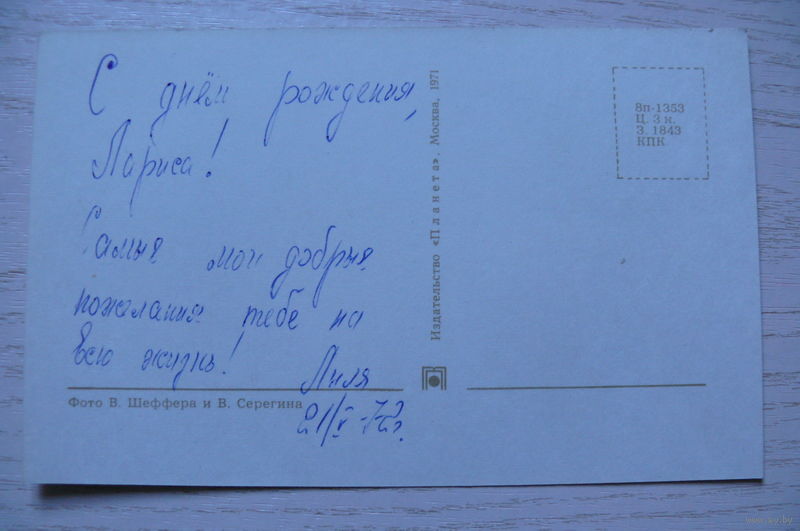 С днём рождения,
Лариса!
Самые мои добрые
пожелания тебе на
всю жизнь!
Лиля
21/V-72г.
Фото В. Шеффера и В. Серегина
Издательство «Планета». Москва, 1971
8п-1353
Ц. 3 к.
З. 1843
КПК
www.ay.by